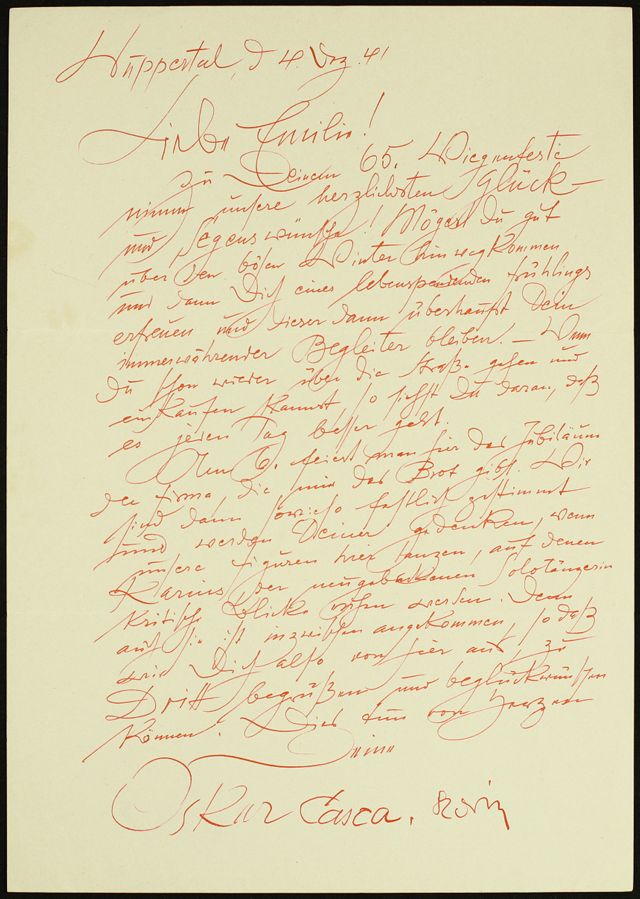 Wuppertal, d 4. Dez. 41
Liebe Emilie!
Zu Deinem 65. Wiegenfeste
nimm unsere herzlichsten Glück-
und Segenswünsche! Mögest Du gut
über den bösen Winter hinwegkommen
und dann Dich eines lebenspendenden Frühlings
erfreuen und dieser dann überhaupt Dein
immerwährender Begleiter bleiben. – Wenn
Du schon wieder über die Straße gehen und
einkaufen kannst, so siehst Du daran, daß
es jeden Tag besser geht.
Am 6. feiert man hier das Jubiläum
der Firma, die mir das Brot gibt. Wir
sind dann sowieso festlich gestimmt
und werden Deiner gedenken, wenn
unsere Figuren hier tanzen, auf denen
Karins der neugebackenen Solotänzerin
kritische Blicke ruhen werden. Denn
auch sie ist inzwischen angekommen, so daß
wir Dich also von hier aus, zu
Dritt begrüßen und beglückwünschen
können. Dies tun von Herzen
Deine
Oskar Tasca. Karin